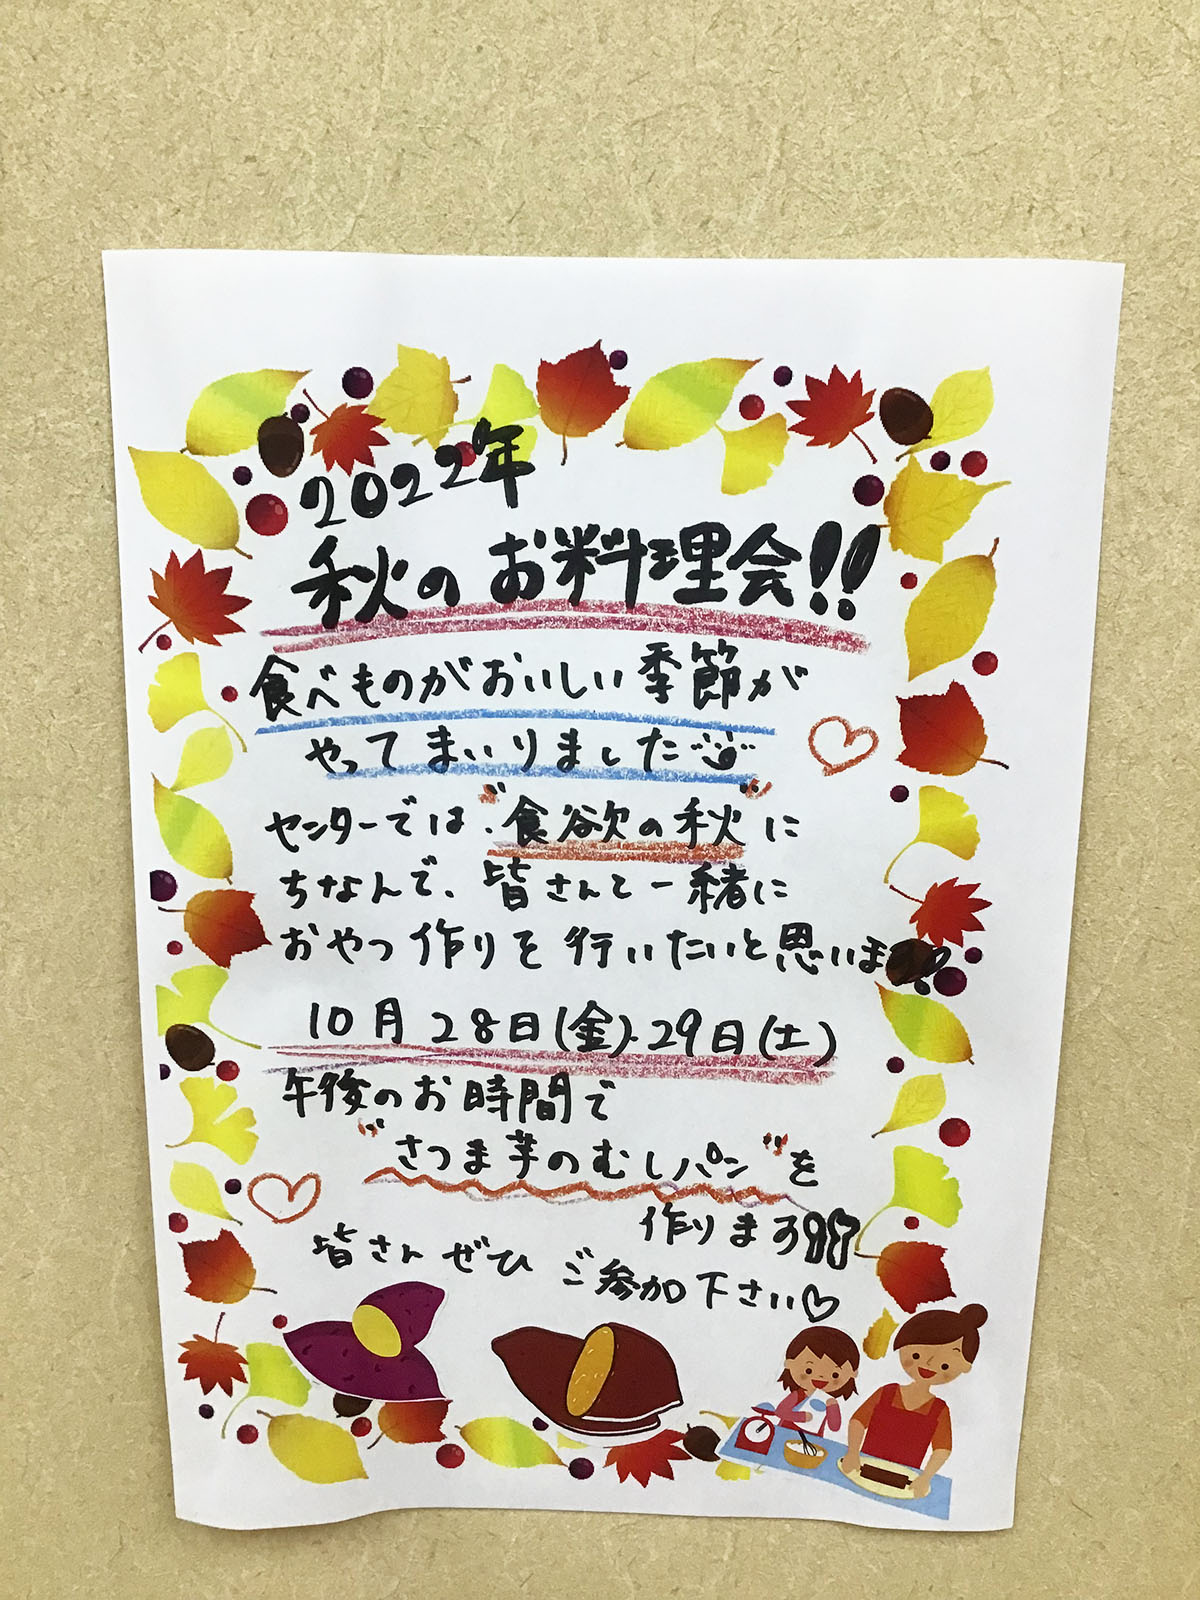 2022年
秋のお料理会!!
食べものがおいしい季節が
やってまいりました
センターでは、"食欲の秋"に
ちなんで、皆さんと一緒に
おやつ作りを行いたいと思います
10月28日(金)・29日(土)
午後のお時間で
"さつま芋のむしパン"を
作ります!!
皆さんぜひご参加下さい♡